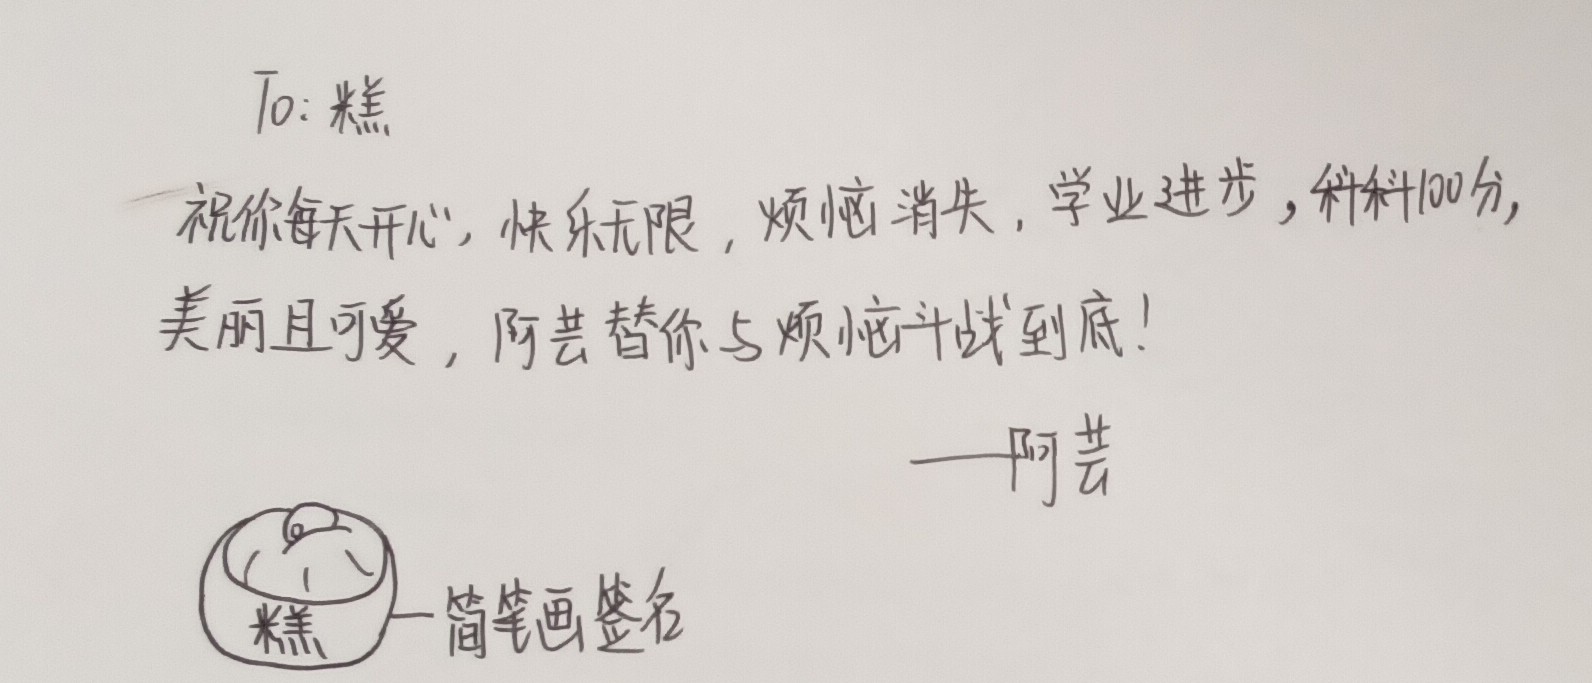 To: 糕
祝你每天开心, 快乐无限, 烦恼消失, 学业进步, 科科100分,
美丽且可爱, 阿芸替你与烦恼斗战到底!
——阿芸
糕
—简笔画签名